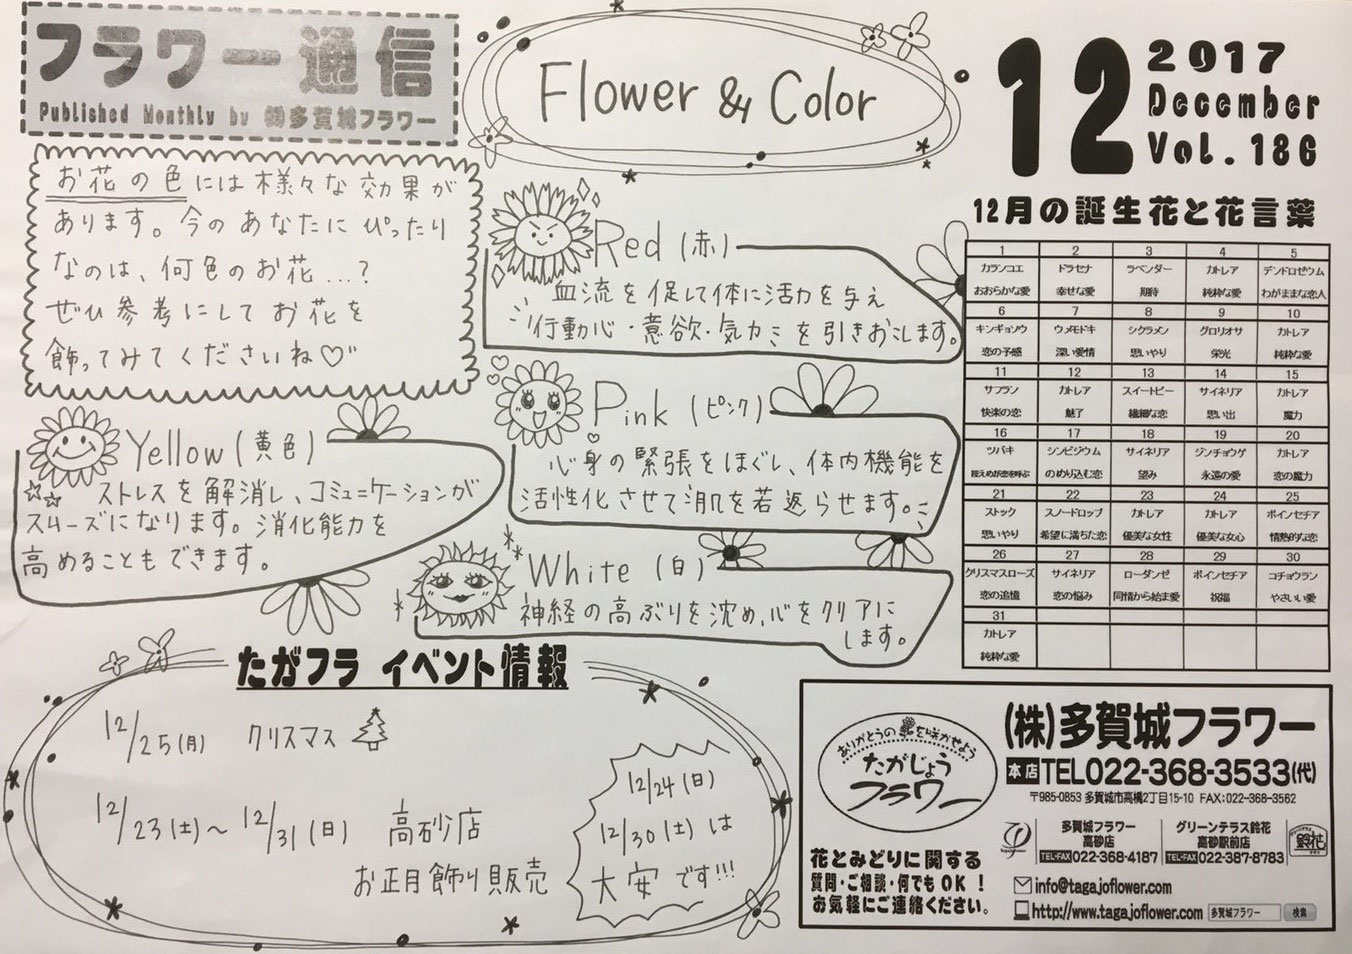 フラワー通信
Published Monthly by ㈱多賀城フラワー
Flower & Color
12
2017
December
Vol.186
お花の色には様々な効果が
あります。今のあなたにぴったり
なのは、何色のお花…?
ぜひ参考にしてお花を
飾ってみてくださいね♡"
Red (赤)
血流を促して体に活力を与え
行動心・意欲・気力を引きおこします。
Pink (ピンク)
心身の緊張をほぐし、体内機能を
活性化させて肌を若返らせます。
Yellow (黄色)
ストレスを解消し、コミュニケーションが
スムーズになります。消化能力を
高めることもできます。
White (白)
神経の高ぶりを沈め、心をクリアに
します。
12月の誕生花と花言葉
1 2 3 4 5
カランコエ ドラセナ ラベンダー カトレア デンドロゼウム
おおらかな愛 幸せな愛 期待 純粋な愛 わがままな恋人
6 7 8 9 10
キンギョソウ ウメモドキ シクラメン グロリオサ カトレア
恋の予感 深い愛情 思いやり 栄光 純粋な愛
11 12 13 14 15
サフラン カトレア スイートピー サイネリア カトレア
快楽の恋 魅了 繊細な恋 思い出 魔力
16 17 18 19 20
ツバキ シンビジウム サイネリア ジンチョウゲ カトレア
控えめが恋を呼ぶ のめり込む恋 望み 永遠の愛 恋の魔力
21 22 23 24 25
ストック スノードロップ カトレア カトレア ポインセチア
思いやり 希望に満ちた恋 優美な女性 優美な女心 情熱的な恋
26 27 28 29 30
クリスマスローズ サイネリア ローダンゼ ポインセチア コチョウラン
恋の追憶 恋の悩み 同情から始ま愛 祝福 やさいい愛
31
カトレア
純粋な愛
たがフラ イベント情報
12/25(月) クリスマス
12/23(土)〜12/31(日) 高砂店
お正月飾り販売
12/24(日)
12/30(土)は
大安です!!!
ありがとうの花を咲かせよう
たがじょう
フラワー
花とみどりに関する
質問・ご相談・何でもOK!
お気軽にご連絡ください。
(株)多賀城フラワー
本店TEL022-368-3533(代)
〒985-0853 多賀城市高橋2丁目15-10 FAX:022-368-3562
多賀城フラワー
高砂店
TEL・FAX022-368-4187
グリーンテラス鈴花
高砂駅前店
TEL・FAX022-387-8783
鈴花
info@tagajoflower.com
http://www.tagajoflower.com 多賀城フラワー 検索